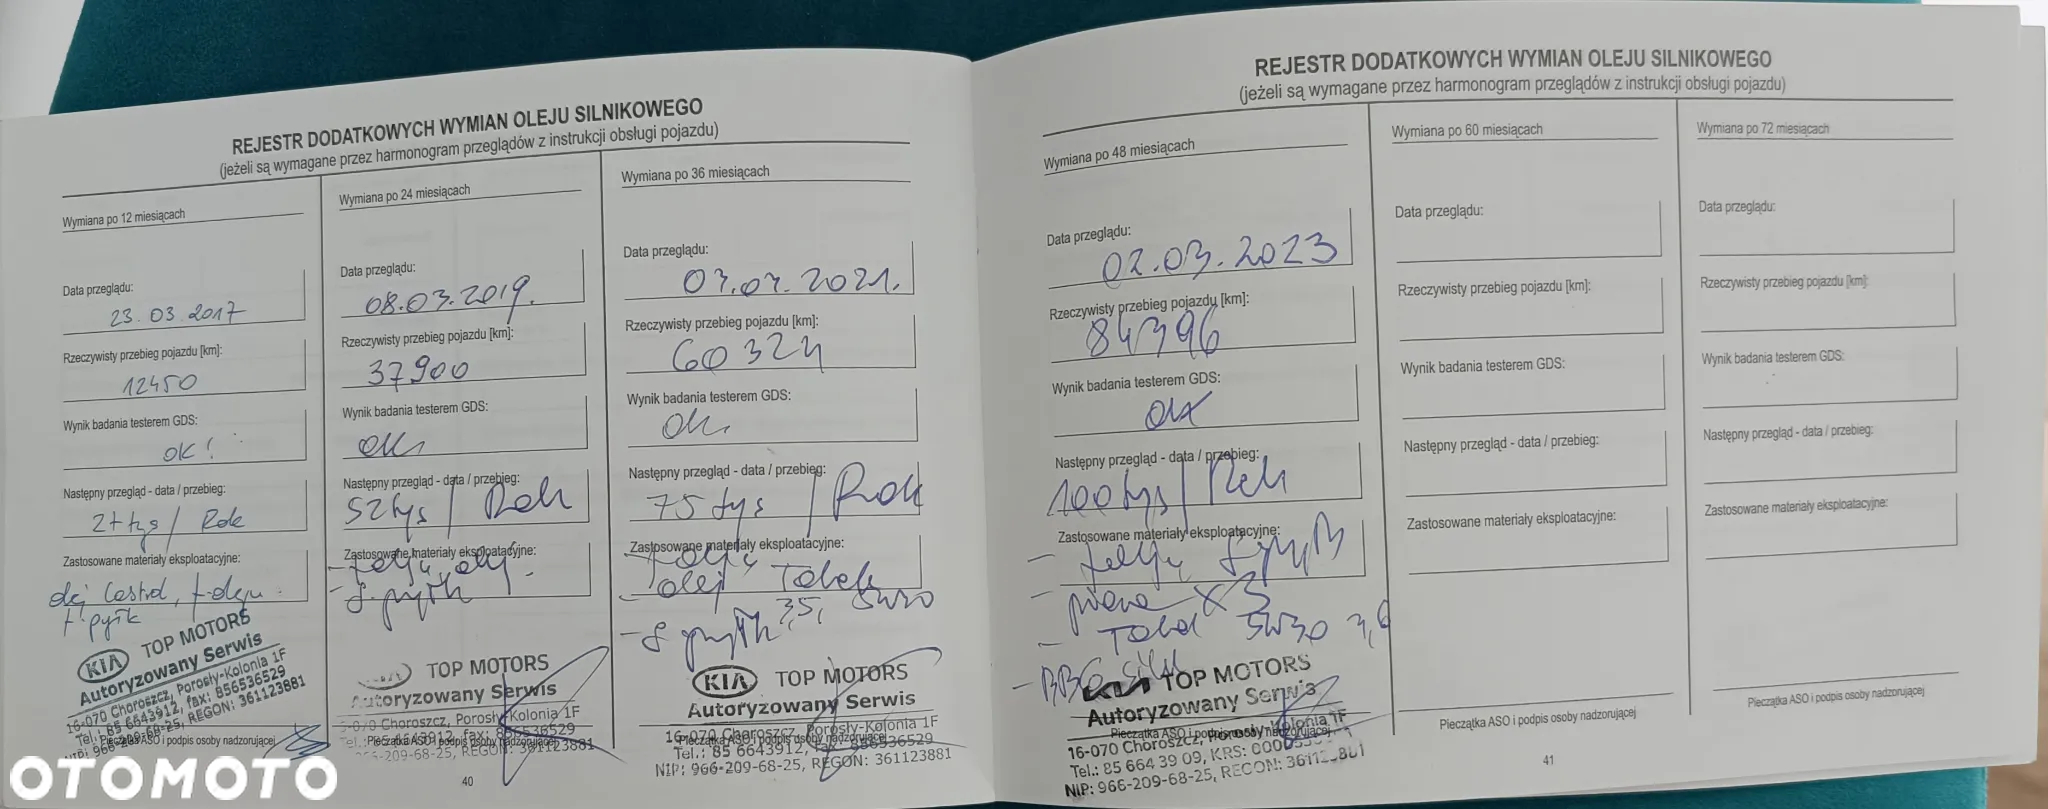 REJESTR DODATKOWYCH WYMIAN OLEJU SILNIKOWEGO
(jeżeli są wymagane przez harmonogram przeglądów z instrukcji obsługi pojazdu)
Wymiana po 12 miesiącach
Data przeglądu:
23.03.2017
Rzeczywisty przebieg pojazdu [km]:
12450
Wynik badania testerem GDS:
OK!
Następny przegląd - data / przebieg:
27 tyś / Rok
Zastosowane materiały eksploatacyjne:
olej Castrol, f. oleju
f. pyłk
KIA TOP MOTORS
Autoryzowany Serwis
16-070 Choroszcz, Porosły-Kolonia 1F
Tel.: 85 6643912, fax: 856536529
NIP: 966-209-68-25, REGON: 361123881
Pieczątka ASO i podpis osoby nadzorującej
Wymiana po 24 miesiącach
Data przeglądu:
08.03.2019.
Rzeczywisty przebieg pojazdu [km]:
37900
Wynik badania testerem GDS:
ok
Następny przegląd - data / przebieg:
52 tyś / Rok
Zastosowane materiały eksploatacyjne:
- f. pyłk
TOP MOTORS
Autoryzowany Serwis
Choroszcz, Porosły-Kolonia 1F
Tel.: 85 6643912, fax: 856536529
-209-68-25, REGON: 361123881
Pieczątka ASO i podpis osoby nadzorującej
40
Wymiana po 36 miesiącach
Data przeglądu:
2021.
Rzeczywisty przebieg pojazdu [km]:
60324
Wynik badania testerem GDS:
ok
Następny przegląd - data / przebieg:
75 tyś / Rok
Zastosowane materiały eksploatacyjne:
- olej Total
3,5, 5W30
- f. pyłk
KIA TOP MOTORS
Autoryzowany Serwis
16-070 Choroszcz, Porosły-Kolonia 1F
Tel.: 85 6643912, fax: 856536529
NIP: 966-209-68-25, REGON: 361123881
Pieczątka ASO i podpis osoby nadzorującej
REJESTR DODATKOWYCH WYMIAN OLEJU SILNIKOWEGO
(jeżeli są wymagane przez harmonogram przeglądów z instrukcji obsługi pojazdu)
Wymiana po 48 miesiącach
Data przeglądu:
02.03.2023
Rzeczywisty przebieg pojazdu [km]:
84396
Wynik badania testerem GDS:
ok
Następny przegląd - data / przebieg:
100 tyś / Rok
Zastosowane materiały eksploatacyjne:
- Total 5W30 3,6
KIA TOP MOTORS
Autoryzowany Serwis
16-070 Choroszcz, Porosły-Kolonia 1F
Tel.: 85 664 39 09, KRS:
NIP: 966-209-68-25, REGON:
Pieczątka ASO i podpis osoby nadzorującej
Wymiana po 60 miesiącach
Data przeglądu:
Rzeczywisty przebieg pojazdu [km]:
Wynik badania testerem GDS:
Następny przegląd - data / przebieg:
Zastosowane materiały eksploatacyjne:
Pieczątka ASO i podpis osoby nadzorującej
Wymiana po 72 miesiącach
Data przeglądu:
Rzeczywisty przebieg pojazdu [km]:
Wynik badania testerem GDS:
Następny przegląd - data / przebieg:
Zastosowane materiały eksploatacyjne:
Pieczątka ASO i podpis osoby nadzorującej
41
OTOMOTO